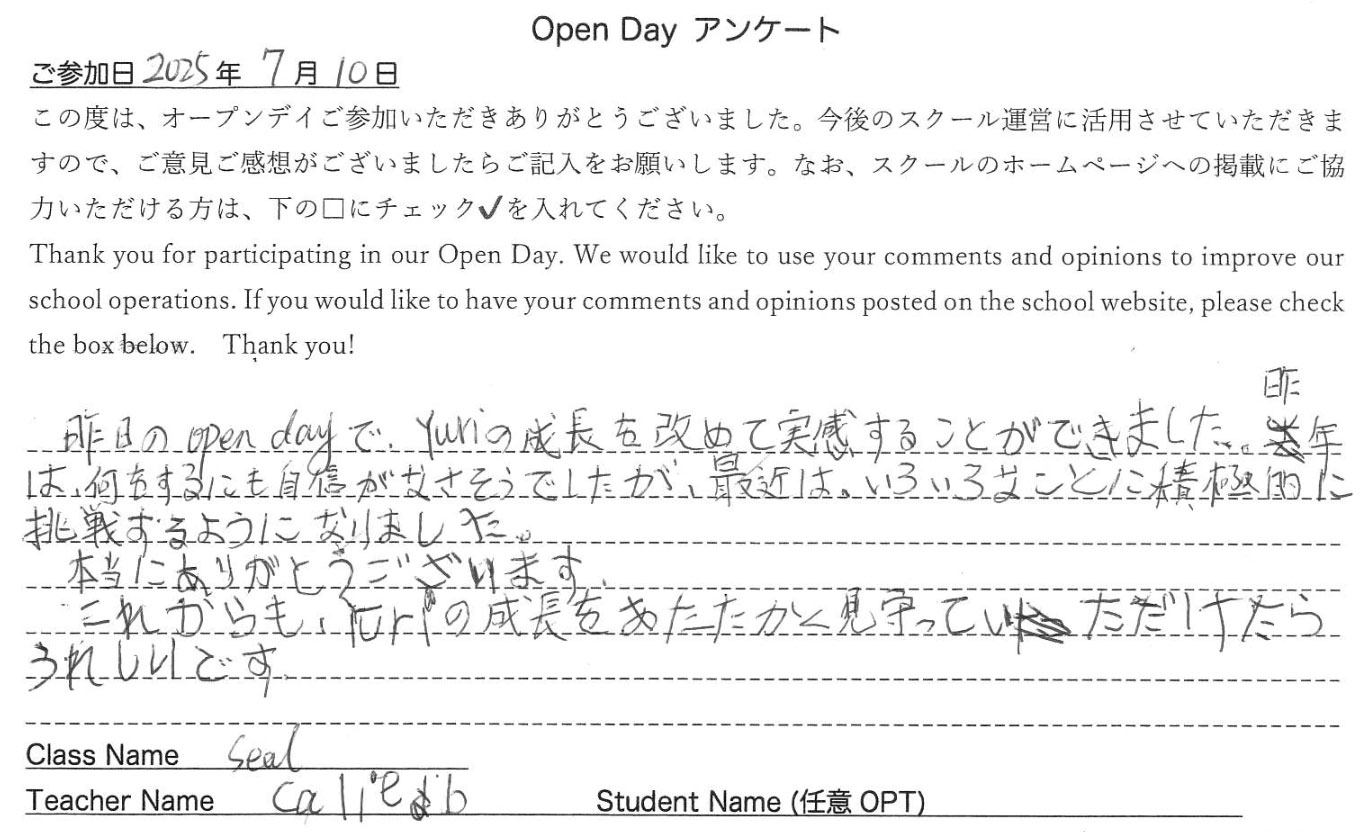 Open Day アンケート
ご参加日 2025年 7月 10日
この度は、オープンデイご参加いただきありがとうございました。今後のスクール運営に活用させていただきま
すので、ご意見ご感想がございましたらご記入をお願いします。なお、スクールのホームページへの掲載にご協
力いただける方は、下の□にチェック✔を入れてください。
Thank you for participating in our Open Day. We would like to use your comments and opinions to improve our
school operations. If you would like to have your comments and opinions posted on the school website, please check
the box below. Thank you!
昨日のopen dayで、Yuriの成長を改めて実感することができました。昨年
は、何をするにも自信がなさそうでしたが、最近は、いろいろなことに積極的に
挑戦するようになりました。
本当にありがとうございます。
これからも、Yuriの成長をあたたかく見守っていただけたら
うれしいです。
Class Name Seal
Teacher Name
Student Name (任意 OPT)